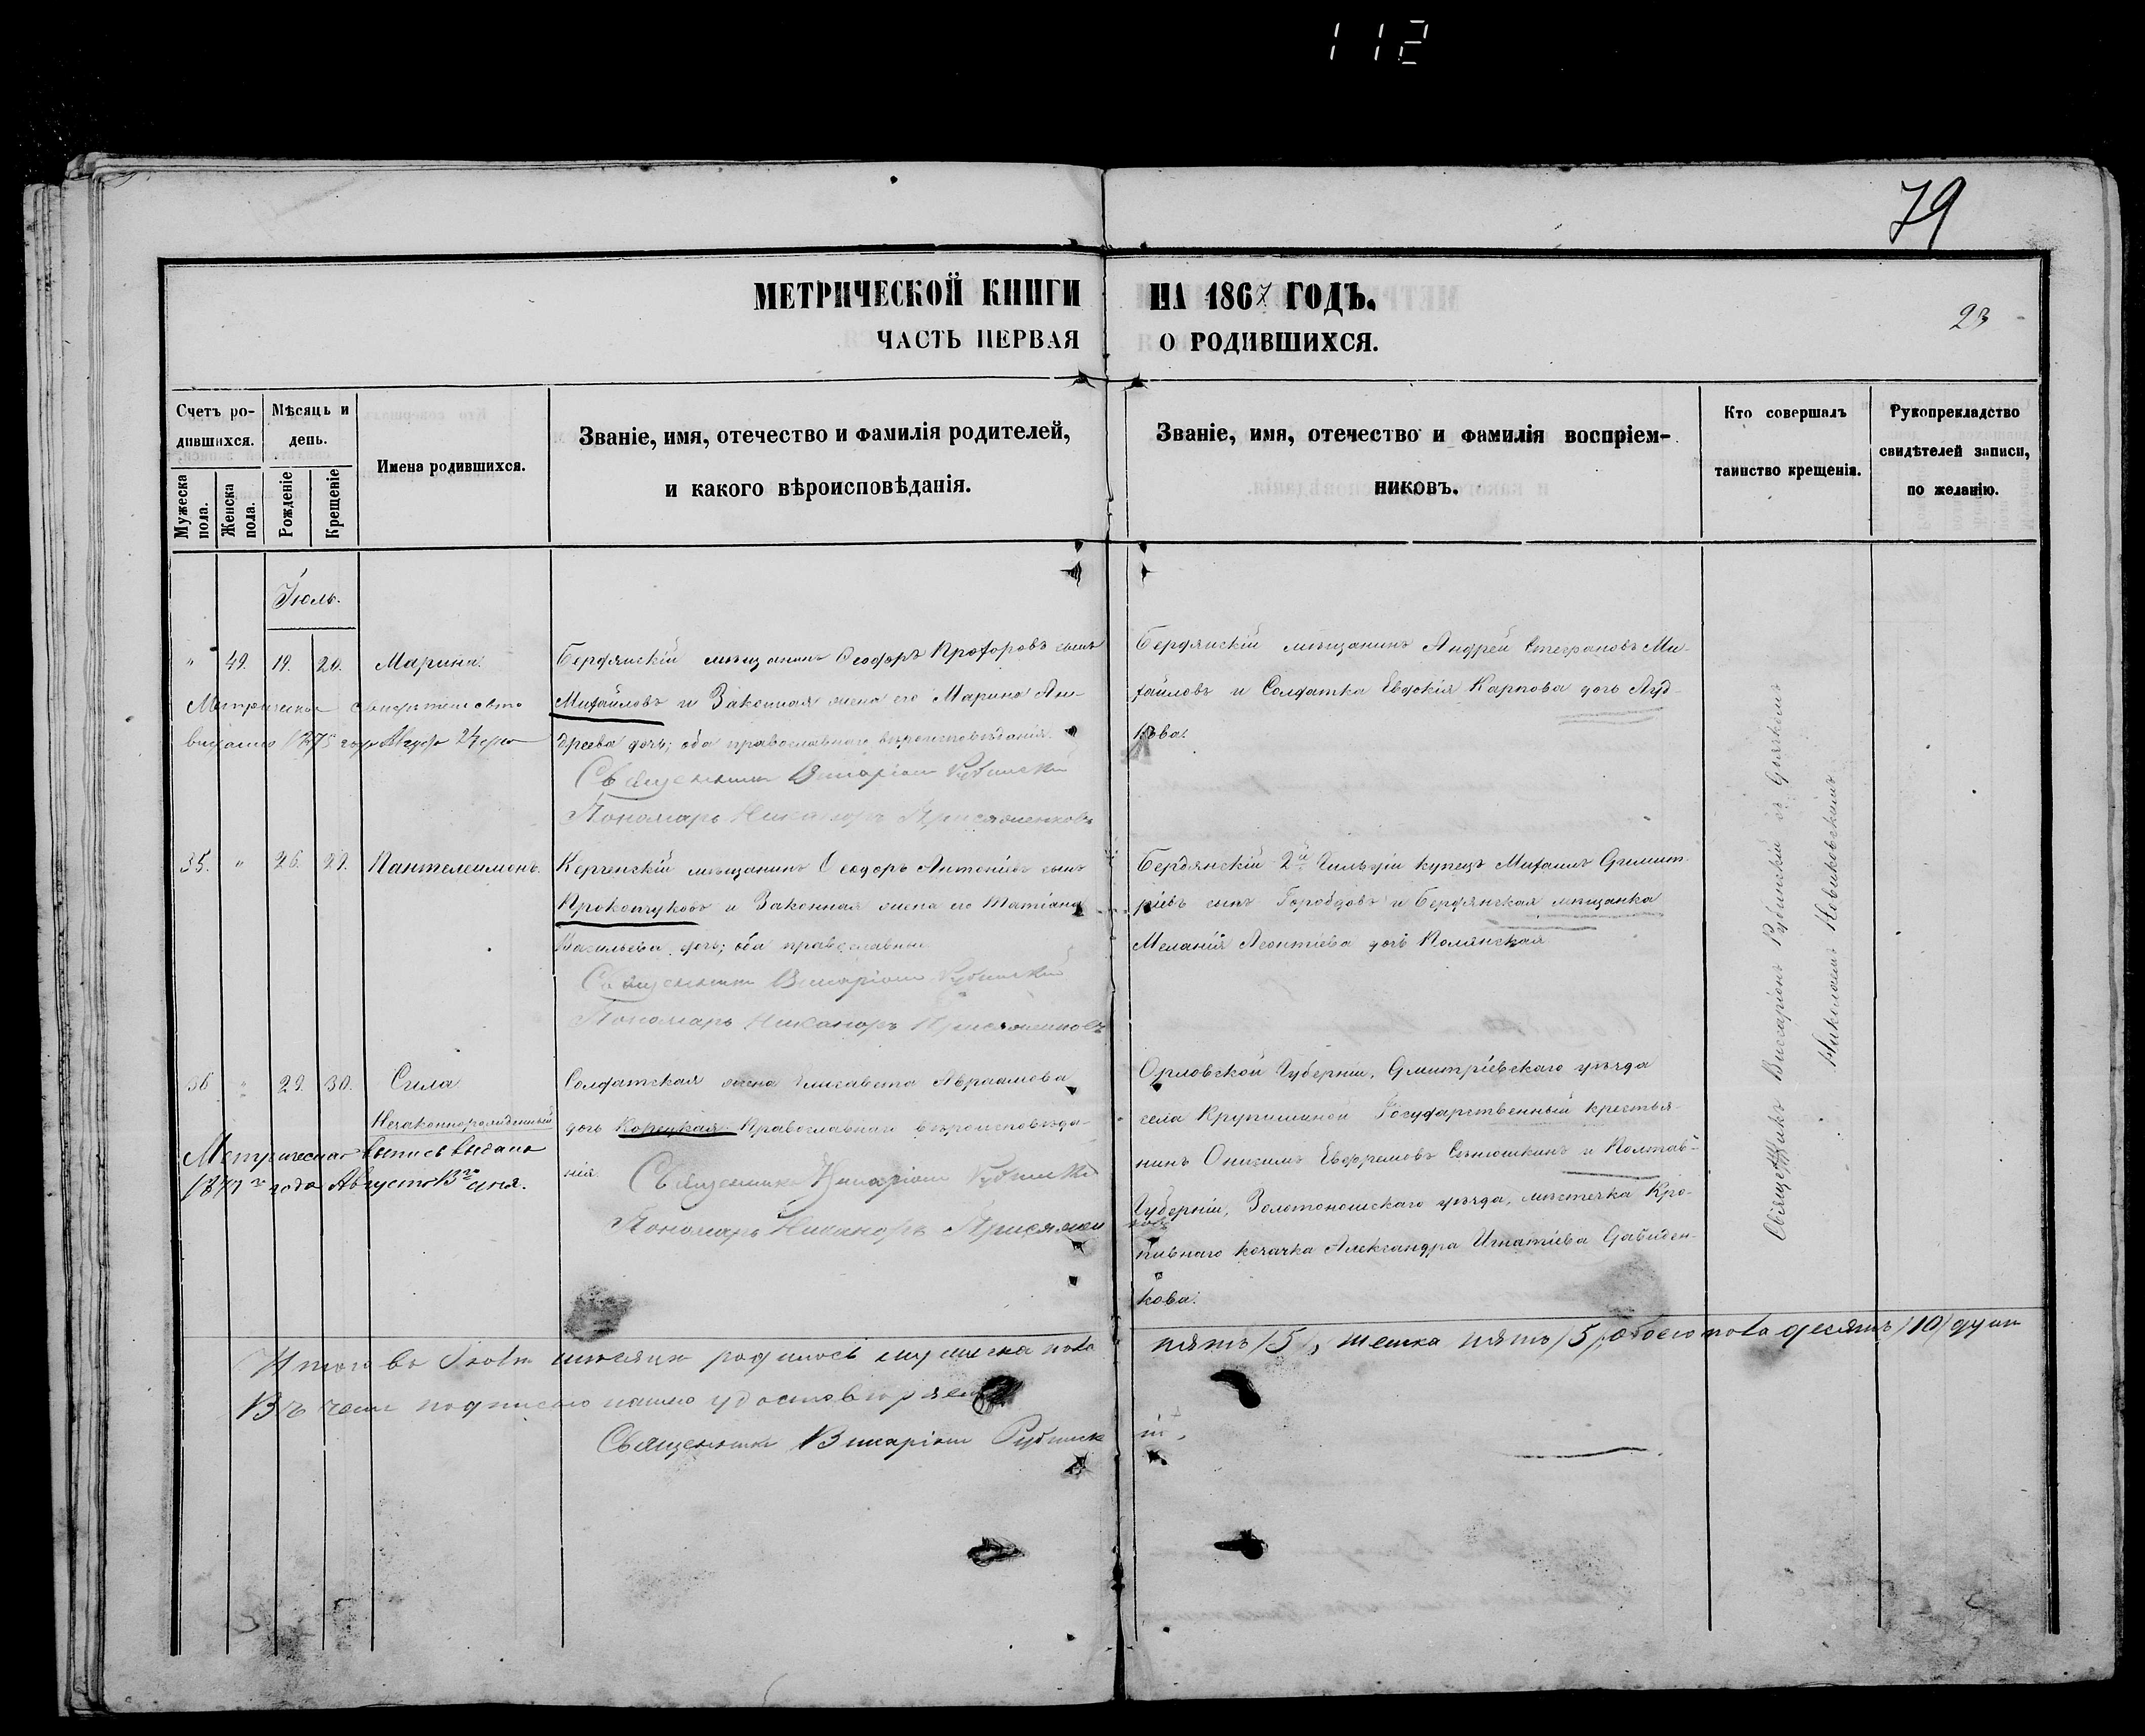 112
79
МЕТРИЧЕСКОЙ КНИГИ НА 1867 ГОДЪ.
23
ЧАСТЬ ПЕРВАЯ О РОДИВШИХСЯ.
Счетъ ро-
дившихся.
Мужеска пола.
Женска пола.
Мѣсяцъ и
день.
Рожденіе
Крещеніе
Имена родившихся.
Званіе, имя, отечество и фамилія родителей,
и какого вѣроисповѣданія.
Званіе, имя, отечество и фамилія воспріем-
никовъ.
Кто совершалъ
таинство крещенія.
Рукоприкладство
свидѣтелей записи,
по желанію.
Іюль.
" 49. 19. 20. Марина.
Метрическое свидетельство
выдано 1875 года
Бердянскій мѣщанинъ Ѳеодоръ Прохоровъ сынъ
Михайловъ и Законная жена его Марина Ан-
дреева дочь; оба православнаго вѣроисповѣданія.
Священникъ Виссаріонъ Рубинскій
Пономарь Никаноръ
Бердянскій мѣщанинъ Андрей Стефановъ Ми-
хайловъ и Солдатка Евдокія Карпова дочь
кова.
35. " 26. 27. Пантелеимонъ.
Керченскій мѣщанинъ Ѳеодоръ Антоніевъ сынъ
Прокопчуковъ и Законная жена его Татіана
Васильева дочь; оба православные
Священникъ Виссаріонъ Рубинскій
Пономарь Никаноръ
Бердянскій 2й Гильдіи купецъ Михаилъ Димит-
ріевъ сынъ и Бердянская мѣщанка
Меланія Леонтіева дочь Полянская
36 " 29. 30. Сила
Незаконнорожденный
Метрическая выпись выдана
года Августа дня.
Солдатская жена Елисавета Авраамова
дочь Корецкая Православнаго вѣроисповѣда-
нія.
Священникъ Виссаріонъ Рубинскій
Пономарь Никаноръ
Орловской Губерніи, Дмитріевскаго уѣзда
села Крупишиной Государственный крестья-
нинъ Онисимъ Евфремовъ и Полтав-
Губерніи, Золотоношскаго уѣзда, мѣстечка Кро-
пивнаго козачка Александра Игнатіева Давиден-
кова.
Священникъ Виссаріонъ Рубинскій съ Дьячкомъ
Николаемъ Новиковскимъ
Итого въ Іюлѣ мѣсяцѣ родилось мужеска пола пять /5/, женска пять /5/, обоего пола десять /10/ душъ
Въ чемъ подписью нашею удостовѣряемъ
Священникъ Виссаріонъ Рубинскій.